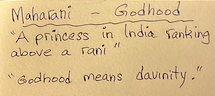 Maharani - Godhood
"A princess in India ranking
above a rani"
"Godhood means davinity."